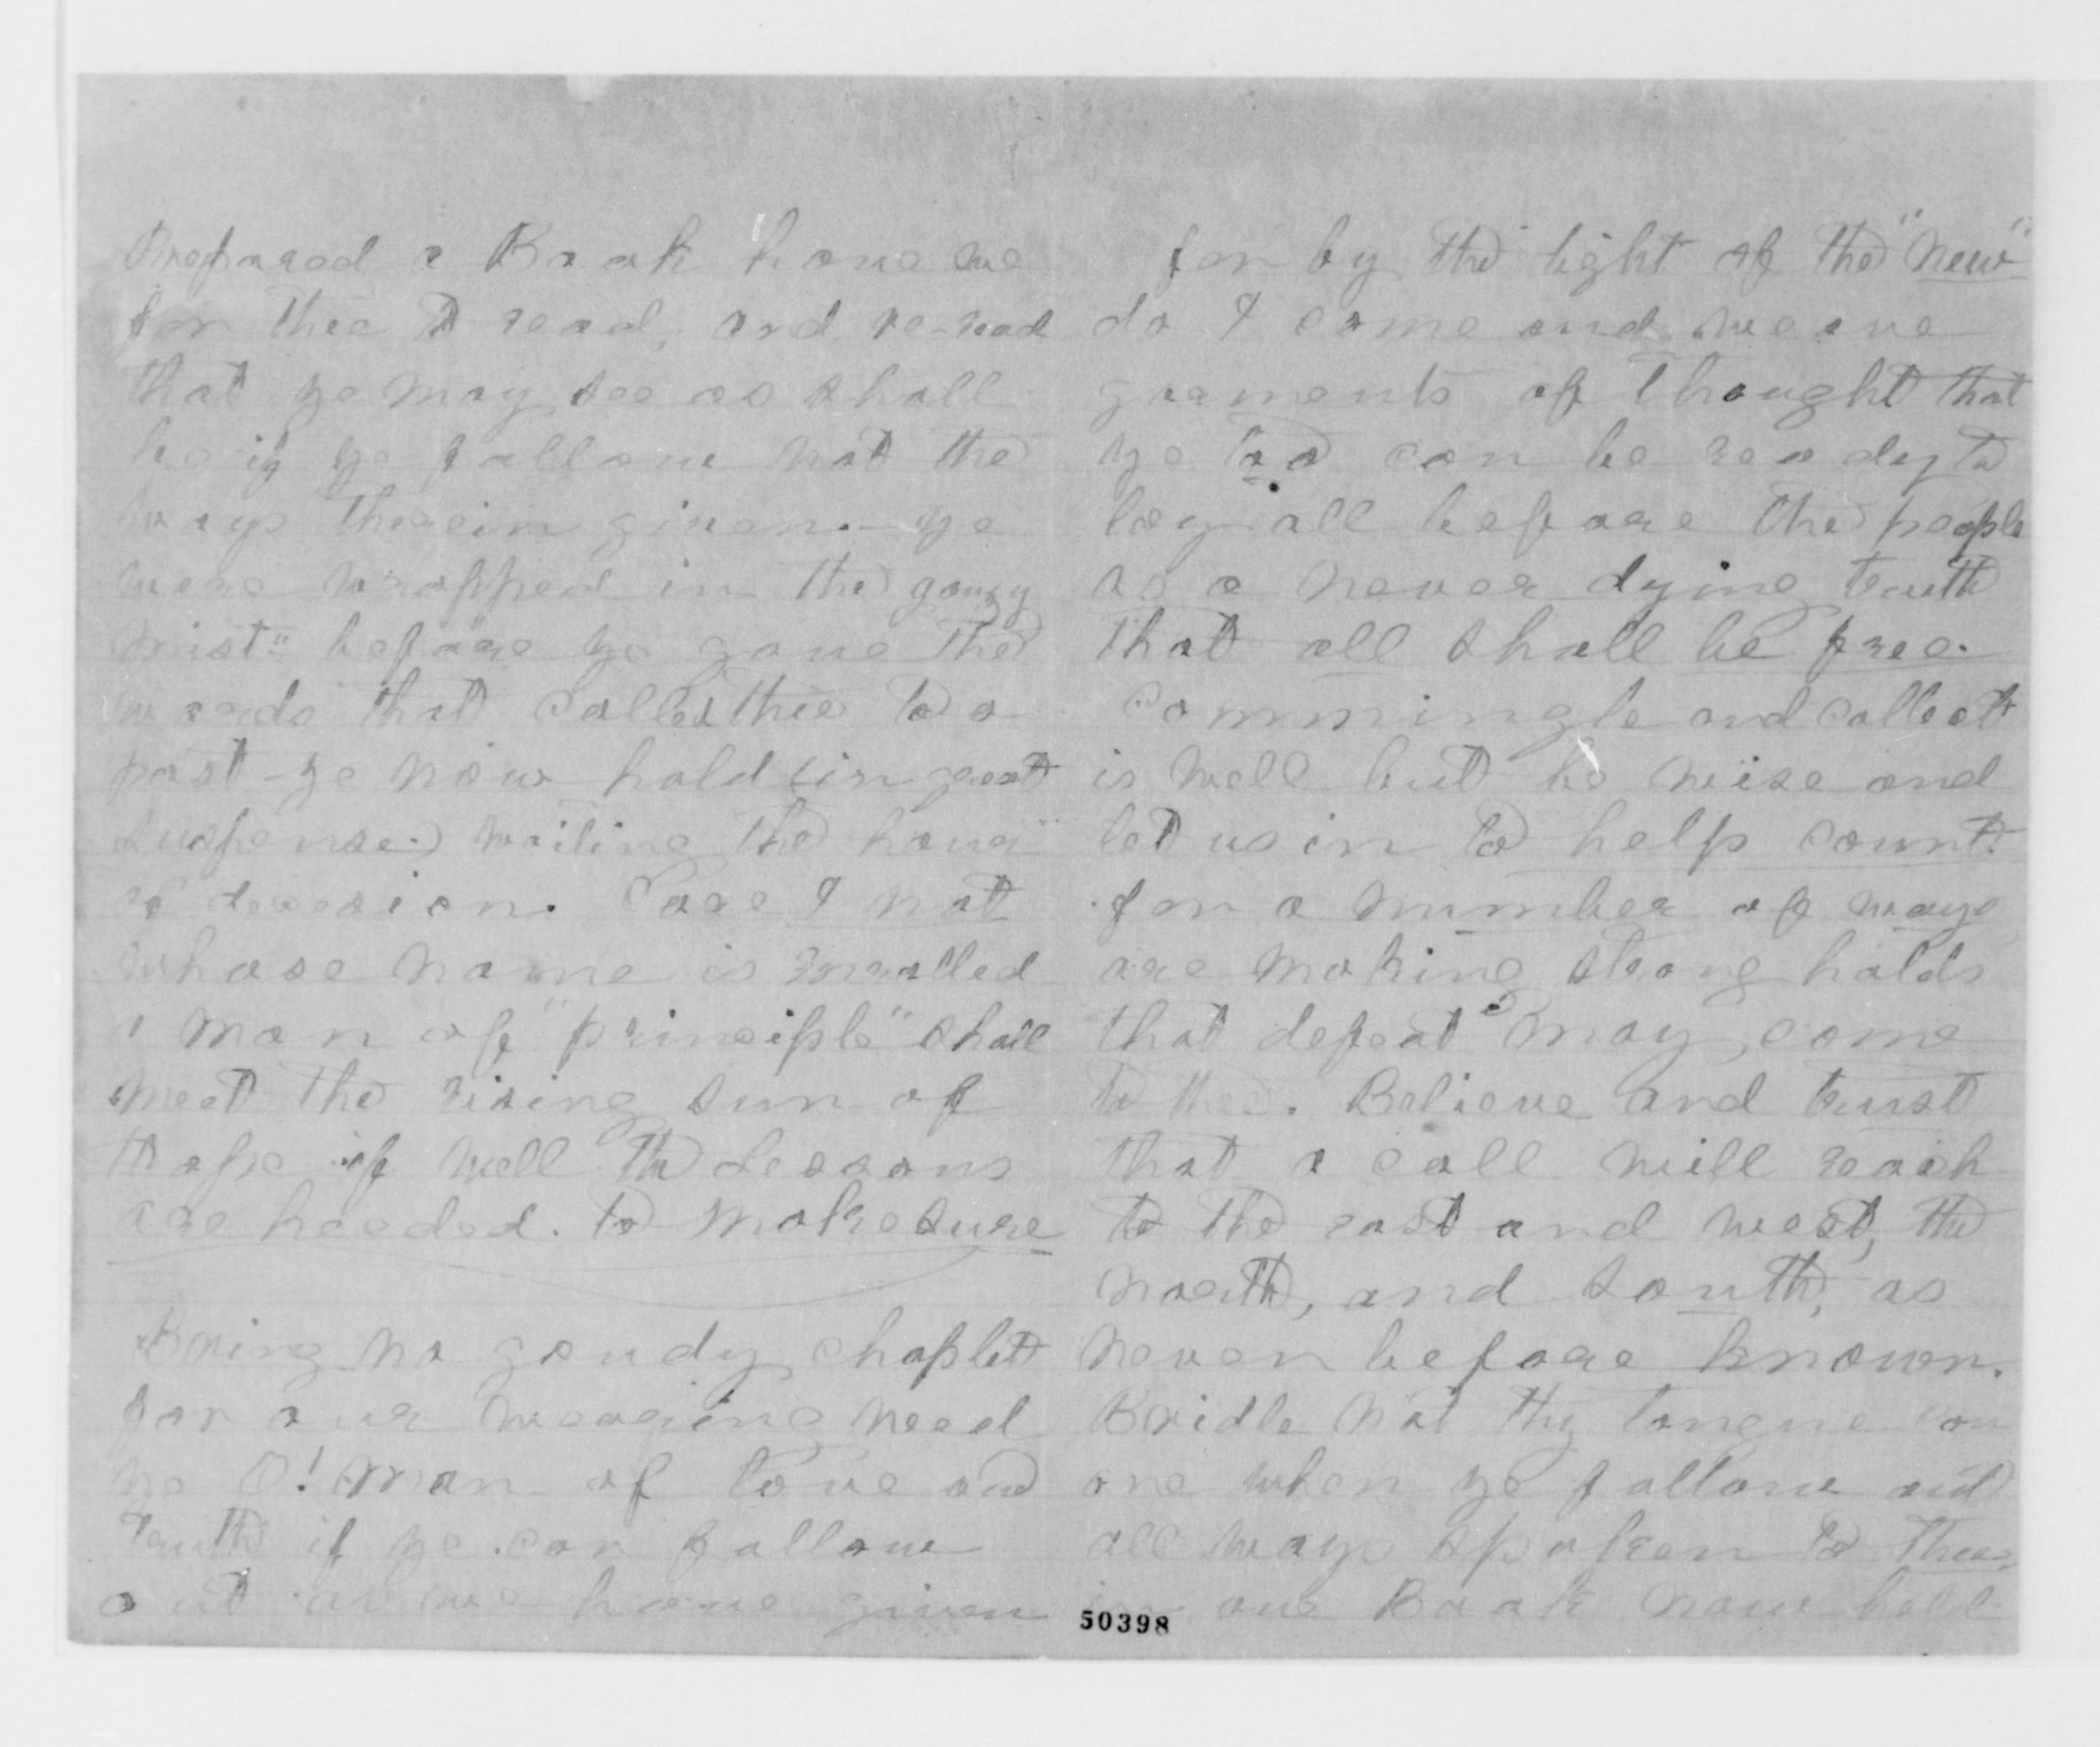 Prepared a Book have we
for thee to read, and re-read
that ye may see as shall
be if ye follow not the
ways therein given. ye
were wrapped in the gauzy
mist" before ye gave the
words that called thee to a
post ye now hold (in great
suspense) waiting the hour
of decesion. Care I not
whose name is enrolled
a man of "principle" shall
meet the rising sun of
hope if well the Lessons
are heeded. to make sure
Bring no gaudy chaplet
for our wearing need
we O! man of love and
Truth if ye can follow
out as we have given
for by the light of the "new"
do I come and weave
garments of Thought that
ye too can be ready to
lay all before the people
as a never dying truth
that all shall be free.
Commingle and collect
is well but be wise and
let us in to help count.
for a number of ways
are making strong holds
that defeat may come
to thee. Believe and trust
that a call will reach
to the east and west, the
north, and south, as
never before known.
Bridle not thy tongue
one when ye follow out
all ways spoken to thee,
in our Book now held
50398